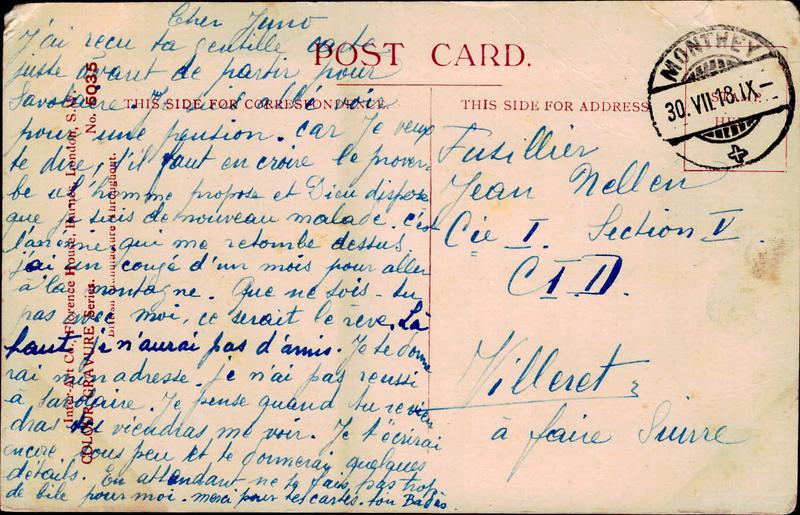 Cher Juno
J'ai reçu ta gentille carte
juste avant de partir pour
Savolaire. Je suis allé voir
pour une pension. Car je veux
te dire, s'il faut en croire le prover-
be « l'homme propose et Dieu dispose
que je suis de nouveau malade. C'est
l'anémie qui me retombe dessus.
j'ai un congé d'un mois pour aller
à la montagne. Que ne sois-tu
pas avec moi, ce serait le rêve. Là
haut je n'aurai pas d'amis. Je te donne
rai mon adresse. Je n'ai pas réussi
à Savolaire. Je pense quand tu revien
dras tu viendras me voir. Je t'écrirai
encore sous peu et te donnerai quelques
détails. En attendant ne te fais pas trop
de bile pour moi. merci pour tes cartes. ton
POST CARD.
THIS SIDE FOR CORRESPONDENCE.
THIS SIDE FOR ADDRESS
Inter-Art Co., Florence House, Barnes, London, S.W.
COLOUR-GRAVURE Series. No. 5035
British Manufacture Throughout.
MONTHEY
30.VII.18.IX-
STAMP
HERE
Fusillier
Jean Nellen
Cie I. Section V.
C I D.
Villeret
à faire suivre